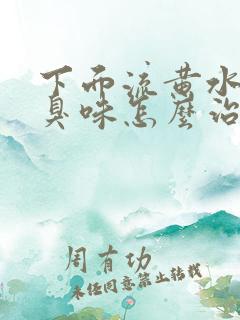 下面流黄水
臭味怎么治
周有功
未经同意禁止转载